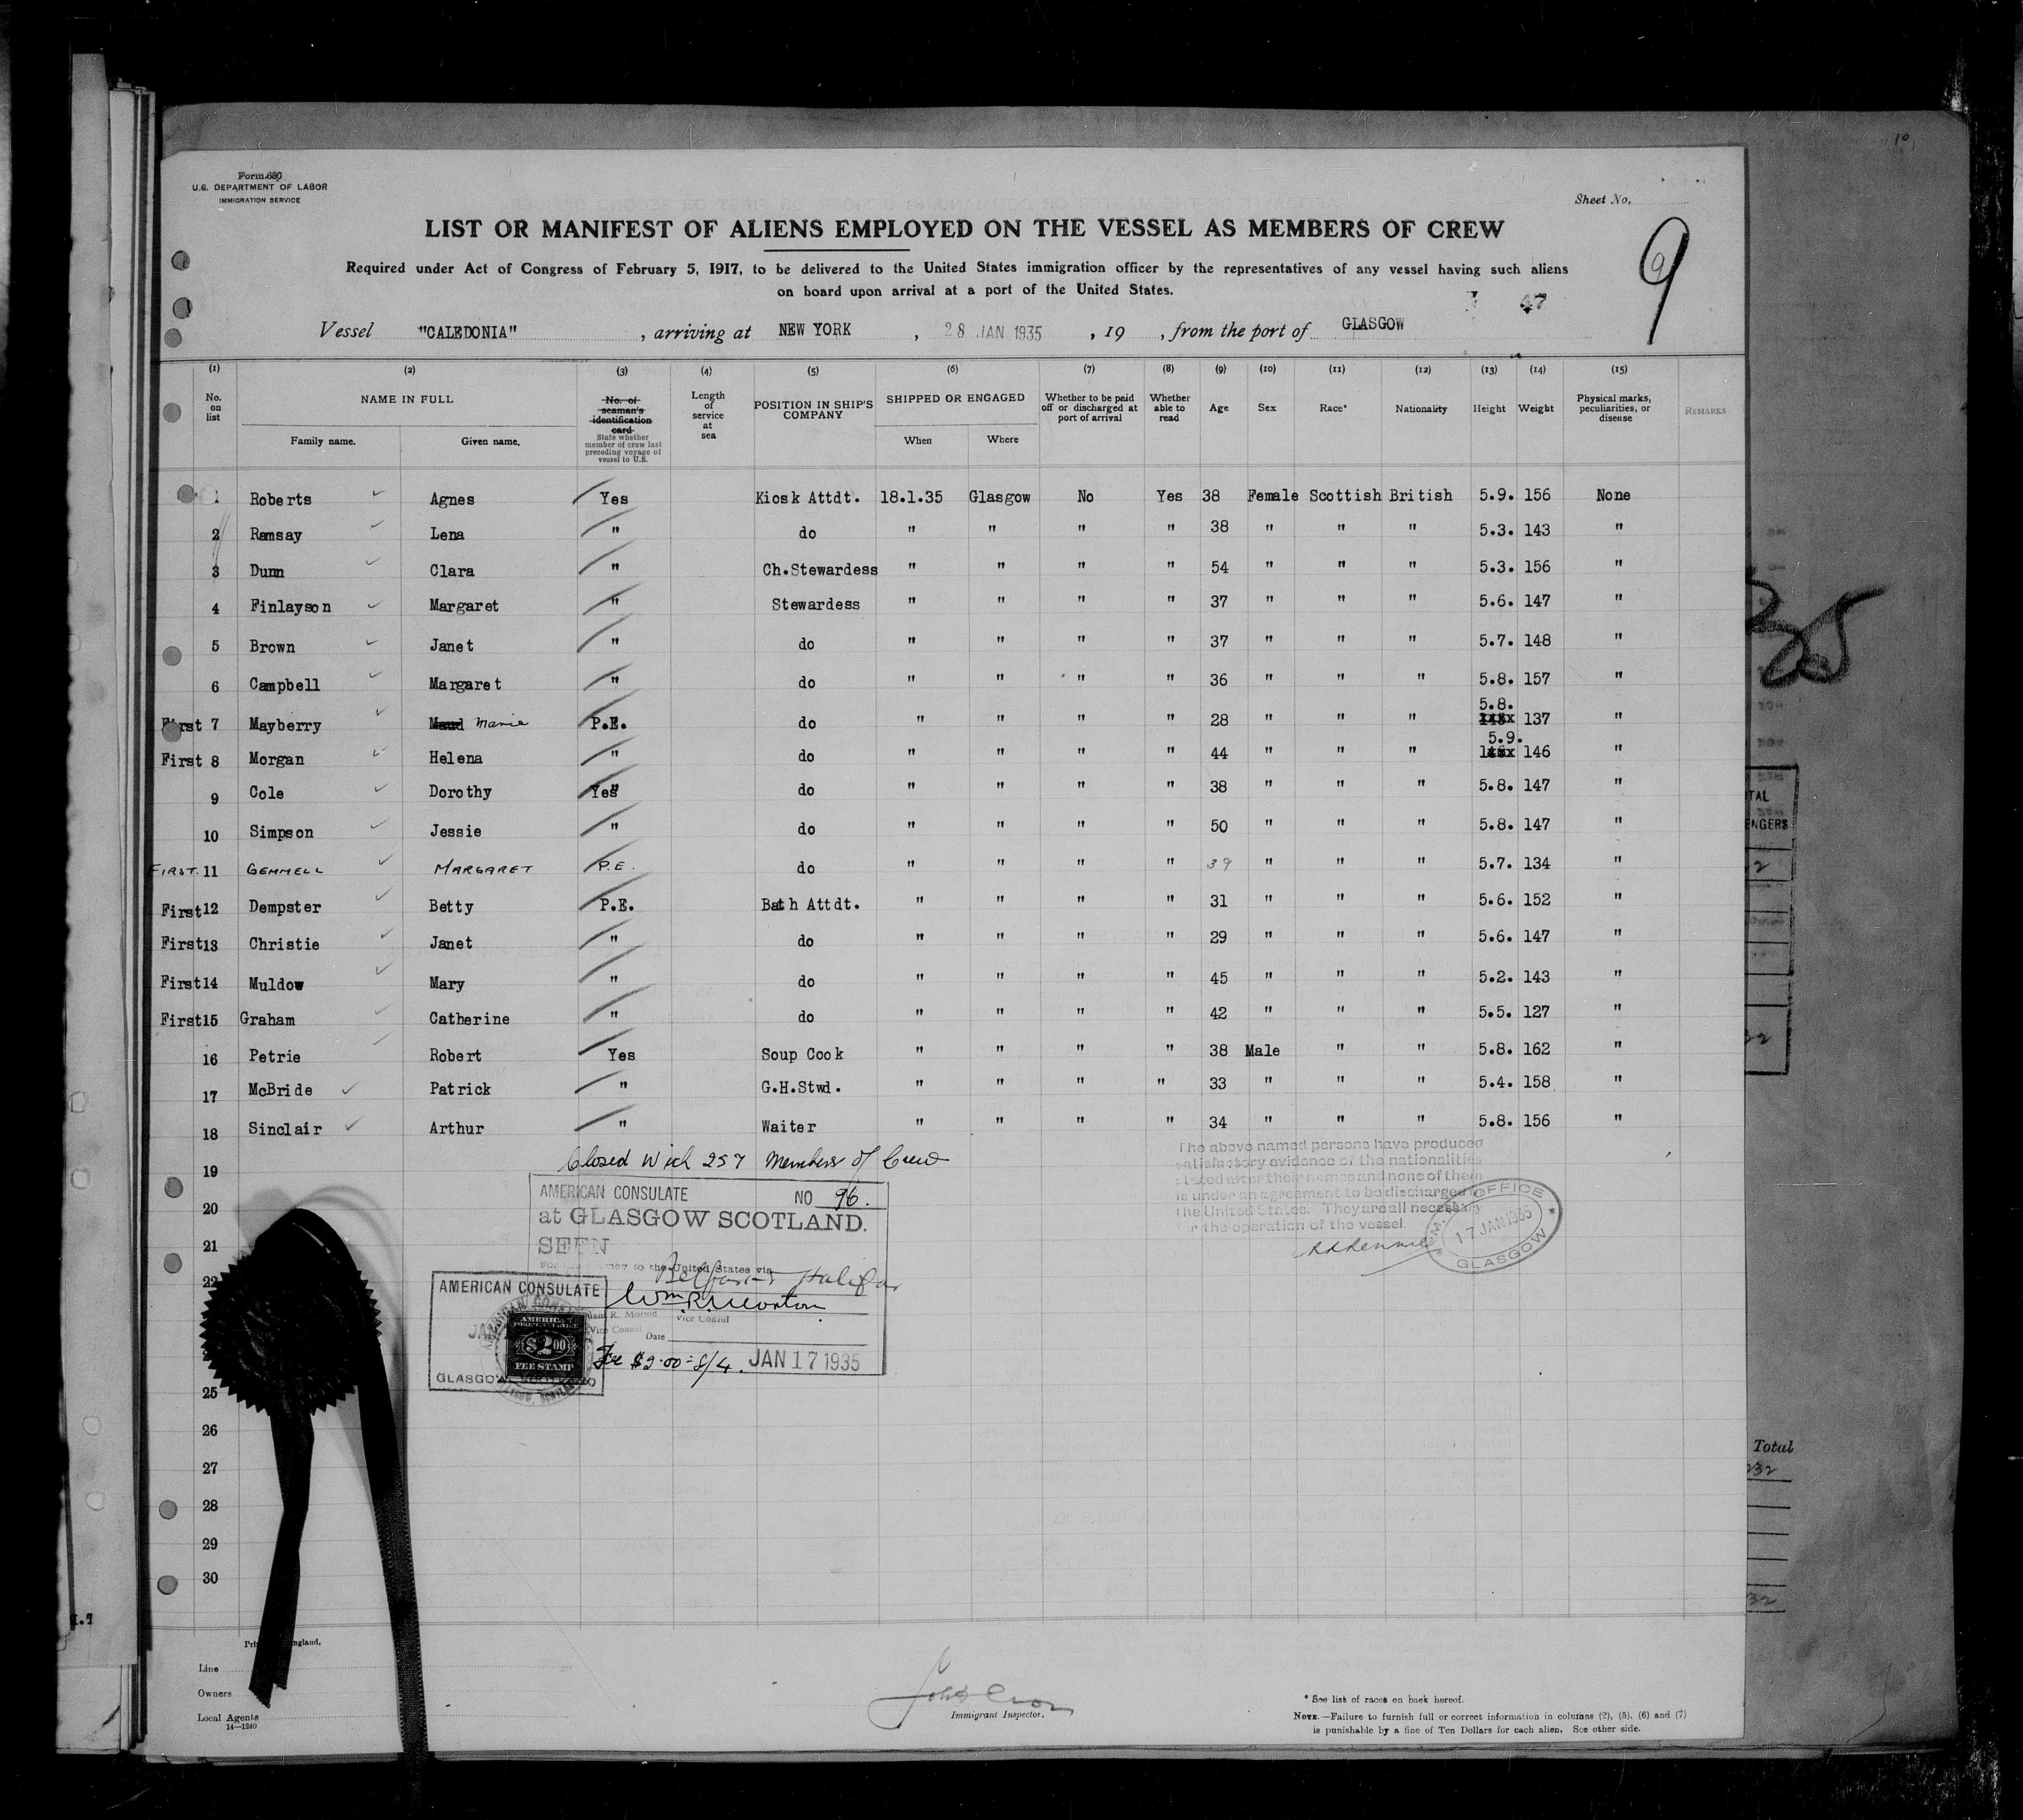 Form 680
U.S. DEPARTMENT OF LABOR
IMMIGRATION SERVICE
Sheet No.
LIST OR MANIFEST OF ALIENS EMPLOYED ON THE VESSEL AS MEMBERS OF CREW
9
Required under Act of Congress of February 5, 1917, to be delivered to the United States immigration officer by the representatives of any vessel having such aliens
on board upon arrival at a port of the United States.
47
Vessel "CALEDONIA" , arriving at NEW YORK , 28 JAN 1935 , 19 , from the port of GLASGOW
(1) (2) (3) (4) (5) (6) (7) (8) (9) (10) (11) (12) (13) (14) (15)
No. on list NAME IN FULL Family name. Given name. No. of seaman's identification card State whether member of crew last preceding voyage of vessel to U.S. Length of service at sea POSITION IN SHIP'S COMPANY SHIPPED OR ENGAGED When Where Whether to be paid off or discharged at port of arrival Whether able to read Age Sex Race* Nationality Height Weight Physical marks, peculiarities, or disease REMARKS
1 Roberts Agnes Yes Kiosk Attdt. 18.1.35 Glasgow No Yes 38 Female Scottish British 5.9. 156 None
2 Ramsay Lena " do " " " " 38 " " " 5.3. 143 "
3 Dunn Clara " Ch.Stewardess " " " " 54 " " " 5.3. 156 "
4 Finlayson Margaret " Stewardess " " " " 37 " " " 5.6. 147 "
5 Brown Janet " do " " " " 37 " " " 5.7. 148 "
6 Campbell Margaret " do " " " " 36 " " " 5.8. 157 "
First 7 Mayberry Maud Marie P.E. do " " " " 28 " " " 5.8. 137 "
First 8 Morgan Helena " do " " " " 44 " " " 5.9. 146 "
9 Cole Dorothy Yes" do " " " " 38 " " " 5.8. 147 "
10 Simpson Jessie " do " " " " 50 " " " 5.8. 147 "
FIRST. 11 GEMMELL MARGARET P.E. do " " " " 39 " " " 5.7. 134 "
First 12 Dempster Betty P.E. Bath Attdt. " " " " 31 " " " 5.6. 152 "
First 13 Christie Janet " do " " " " 29 " " " 5.6. 147 "
First 14 Muldow Mary " do " " " " 45 " " " 5.2. 143 "
First 15 Graham Catherine " do " " " " 42 " " " 5.5. 127 "
16 Petrie Robert Yes Soup Cook " " " " 38 Male " " 5.8. 162 "
17 McBride Patrick " G.H.Stwd. " " " " 33 " " " 5.4. 158 "
18 Sinclair Arthur " Waiter " " " " 34 " " " 5.8. 156 "
19 Closed With 257 Members of Crew
The above named persons have produced
satisfactory evidence of the nationalities
stated after their names and none of them
is under an agreement to be discharged in
the United States. They are all necessary
for the operation of the vessel
OFFICE
17 JAN 1935
GLASGOW
AMERICAN CONSULATE NO 96.
20 at GLASGOW SCOTLAND.
21 SEEN
to the United States via
22 Belfast Halifax
AMERICAN CONSULATE
Wm R. Morton
R. Morton Vice Consul
Vice Consul
Date
AMERICAN
$2.00
FEE STAMP
Fee $2.00 = 8/4. JAN 17 1935
GLASGOW
25
26
27
28
29
30
TOTAL
Total
232
Line
Owners
Local Agents
14—1240
Immigrant Inspector.
* See list of races on back hereof.
NOTE.—Failure to furnish full or correct information in columns (2), (5), (6) and (7)
is punishable by a fine of Ten Dollars for each alien. See other side.